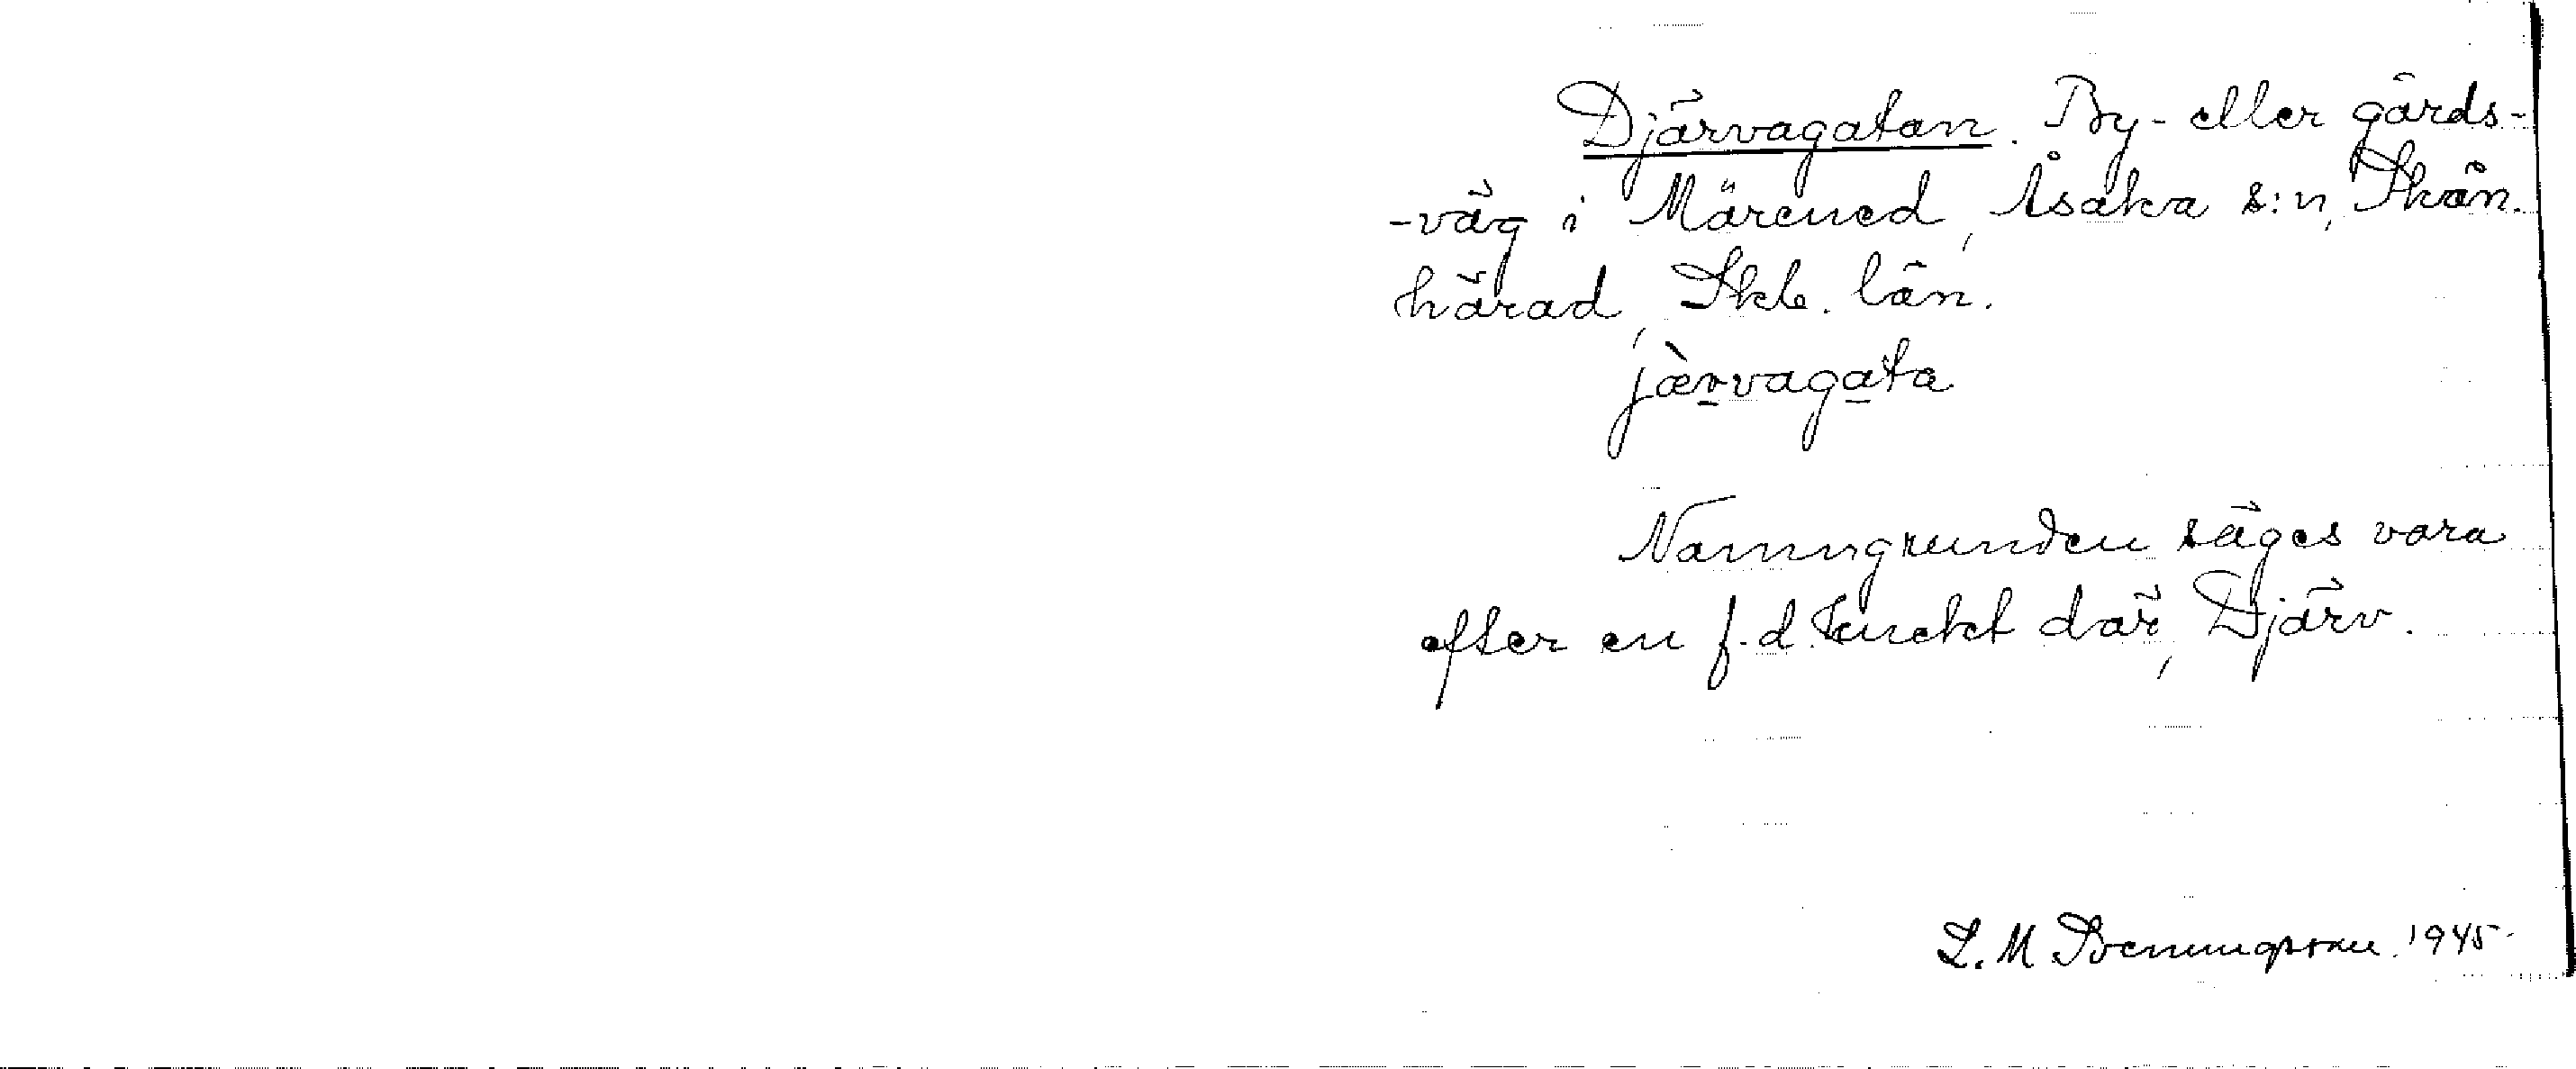 Djärvagatan. By- eller gårds-
-väg i Märened, Åsaka s:n, Skån.
härad, Skb. län.
jæ̀rvagata
Namngrunden säges vara
efter en f.d. knekt där, Djärv.
L. M 1945.